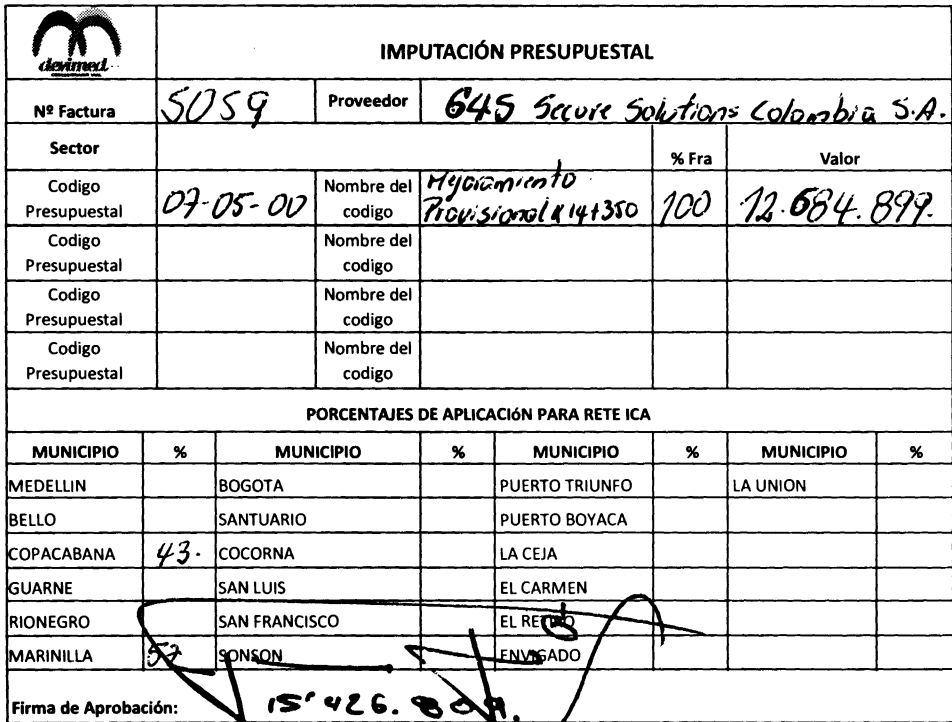 devimed
IMPUTACIÓN PRESUPUESTAL
Nº Factura 5059 Proveedor 645 Secure Solutions Colombia S.A.
Sector % Fra Valor
Codigo Presupuestal 07-05-00 Nombre del codigo Mejoramiento Provisional K14+350 100 12.684.899.
Codigo Presupuestal Nombre del codigo
Codigo Presupuestal Nombre del codigo
Codigo Presupuestal Nombre del codigo
PORCENTAJES DE APLICACIÓN PARA RETE ICA
MUNICIPIO % MUNICIPIO % MUNICIPIO % MUNICIPIO %
MEDELLIN BOGOTA PUERTO TRIUNFO LA UNION
BELLO SANTUARIO PUERTO BOYACA
COPACABANA 43. COCORNA LA CEJA
GUARNE SAN LUIS EL CARMEN
RIONEGRO SAN FRANCISCO EL RETIRO
MARINILLA 57 SONSON ENVIGADO
Firma de Aprobación: 15'426.